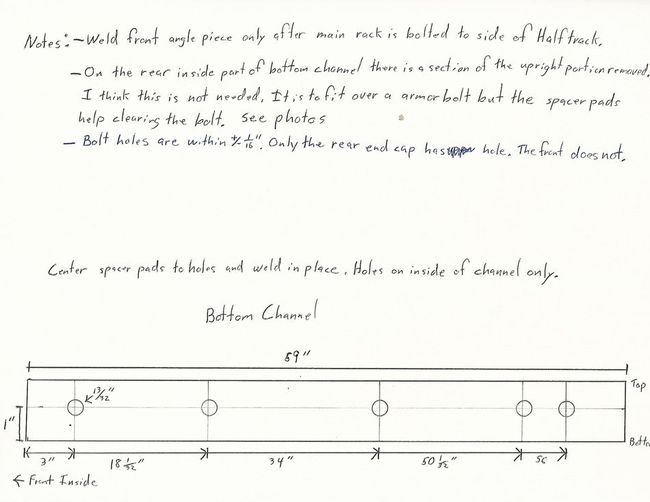 Notes: - Weld front angle piece only after main rack is bolted to side of Halftrack.
- On the rear inside part of bottom channel there is a section of the upright portion removed.
I think this is not needed. It is to fit over a armor bolt but the spacer pads
help clearing the bolt. See photos
- Bolt holes are within +/- 1/16". Only the rear end cap has hole. The front does not.
Center spacer pads to holes and weld in place. Holes on inside of channel only.
Bottom Channel
59"
Top
13/32"
1"
Botto
3" 18 1/32" 34" 50 1/32" 56
← Front Inside